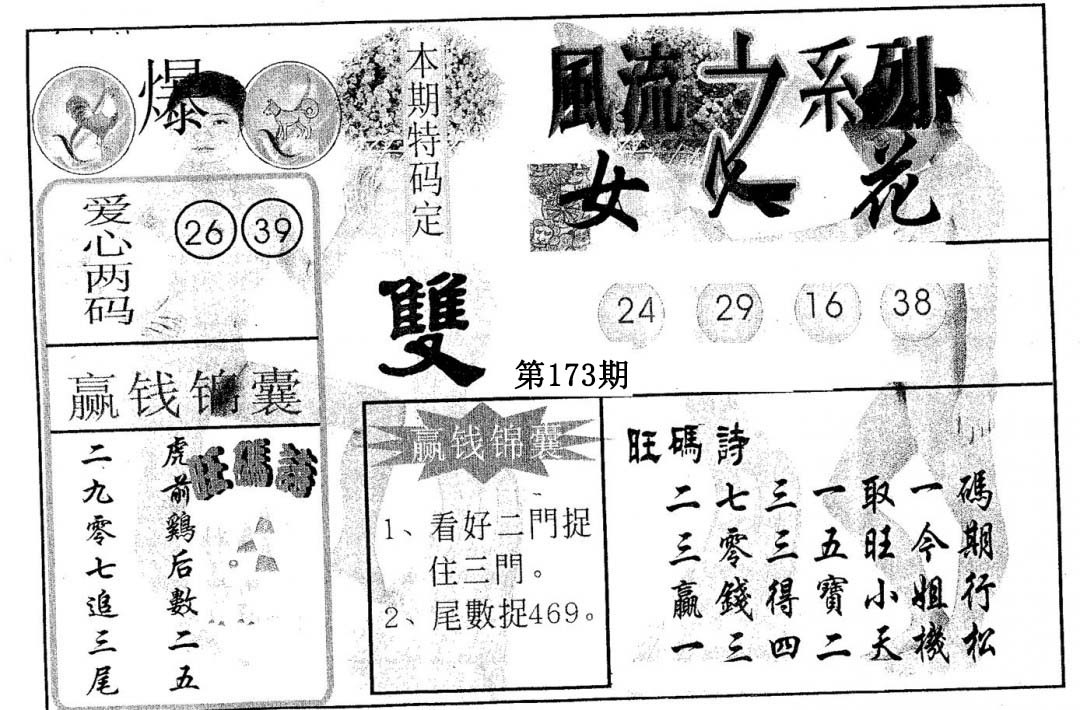 爆
本期特码定
雙
風流之系列
女人花
爱心两码
26 39
24 29 16 38
第173期
赢钱锦囊
旺碼詩
虎前鷄后數二五
二九零七追三尾
赢钱锦囊
1、看好二門捉
住三門。
2、尾數捉469。
旺碼詩
二七三一取一碼
三零三五旺今期
贏錢得寶小姐行
一三四二天機松